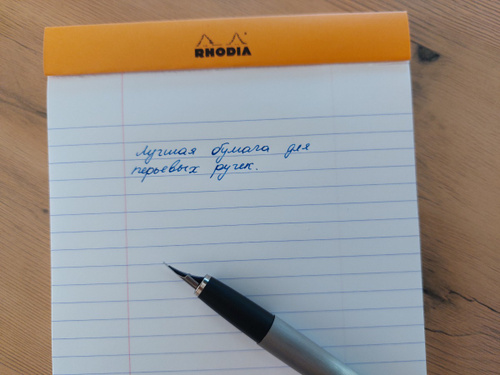 RHODIA
Лучшая бумага для
перьевых ручек.